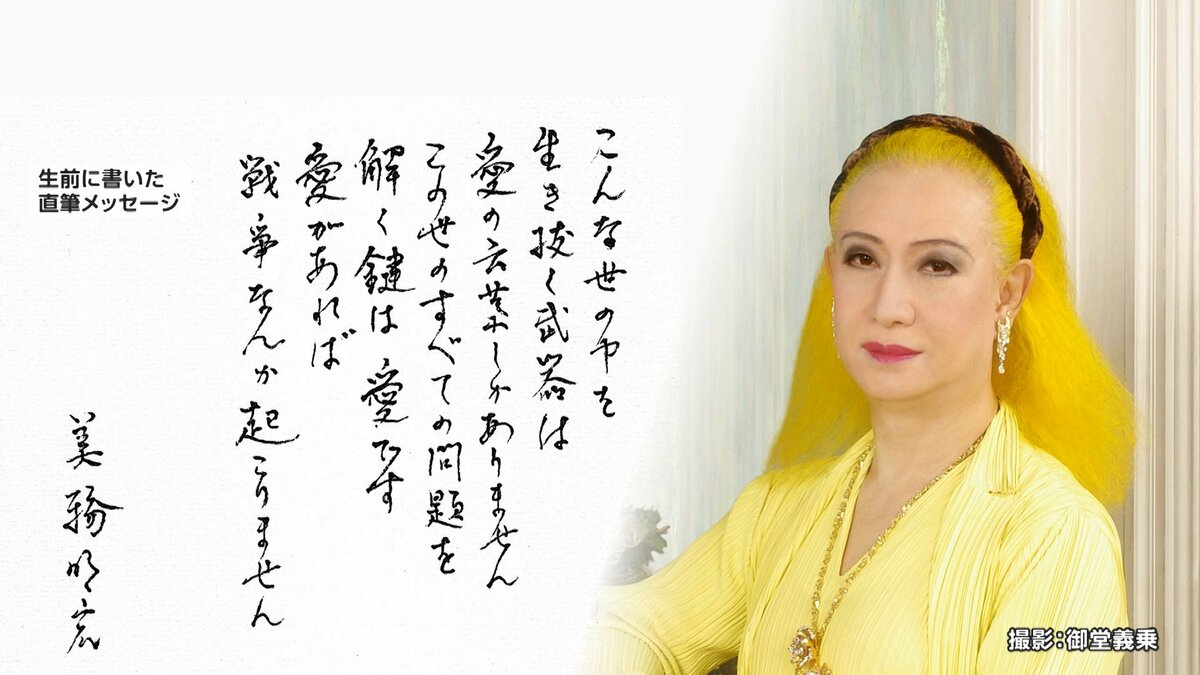 生前に書いた
直筆メッセージ
こんな世の中を
生き抜く武器は
愛の言葉しかありません
この世のすべての問題を
解く鍵は愛です
愛があれば
戦争なんか起こりません
美輪明宏
撮影:御堂義乗